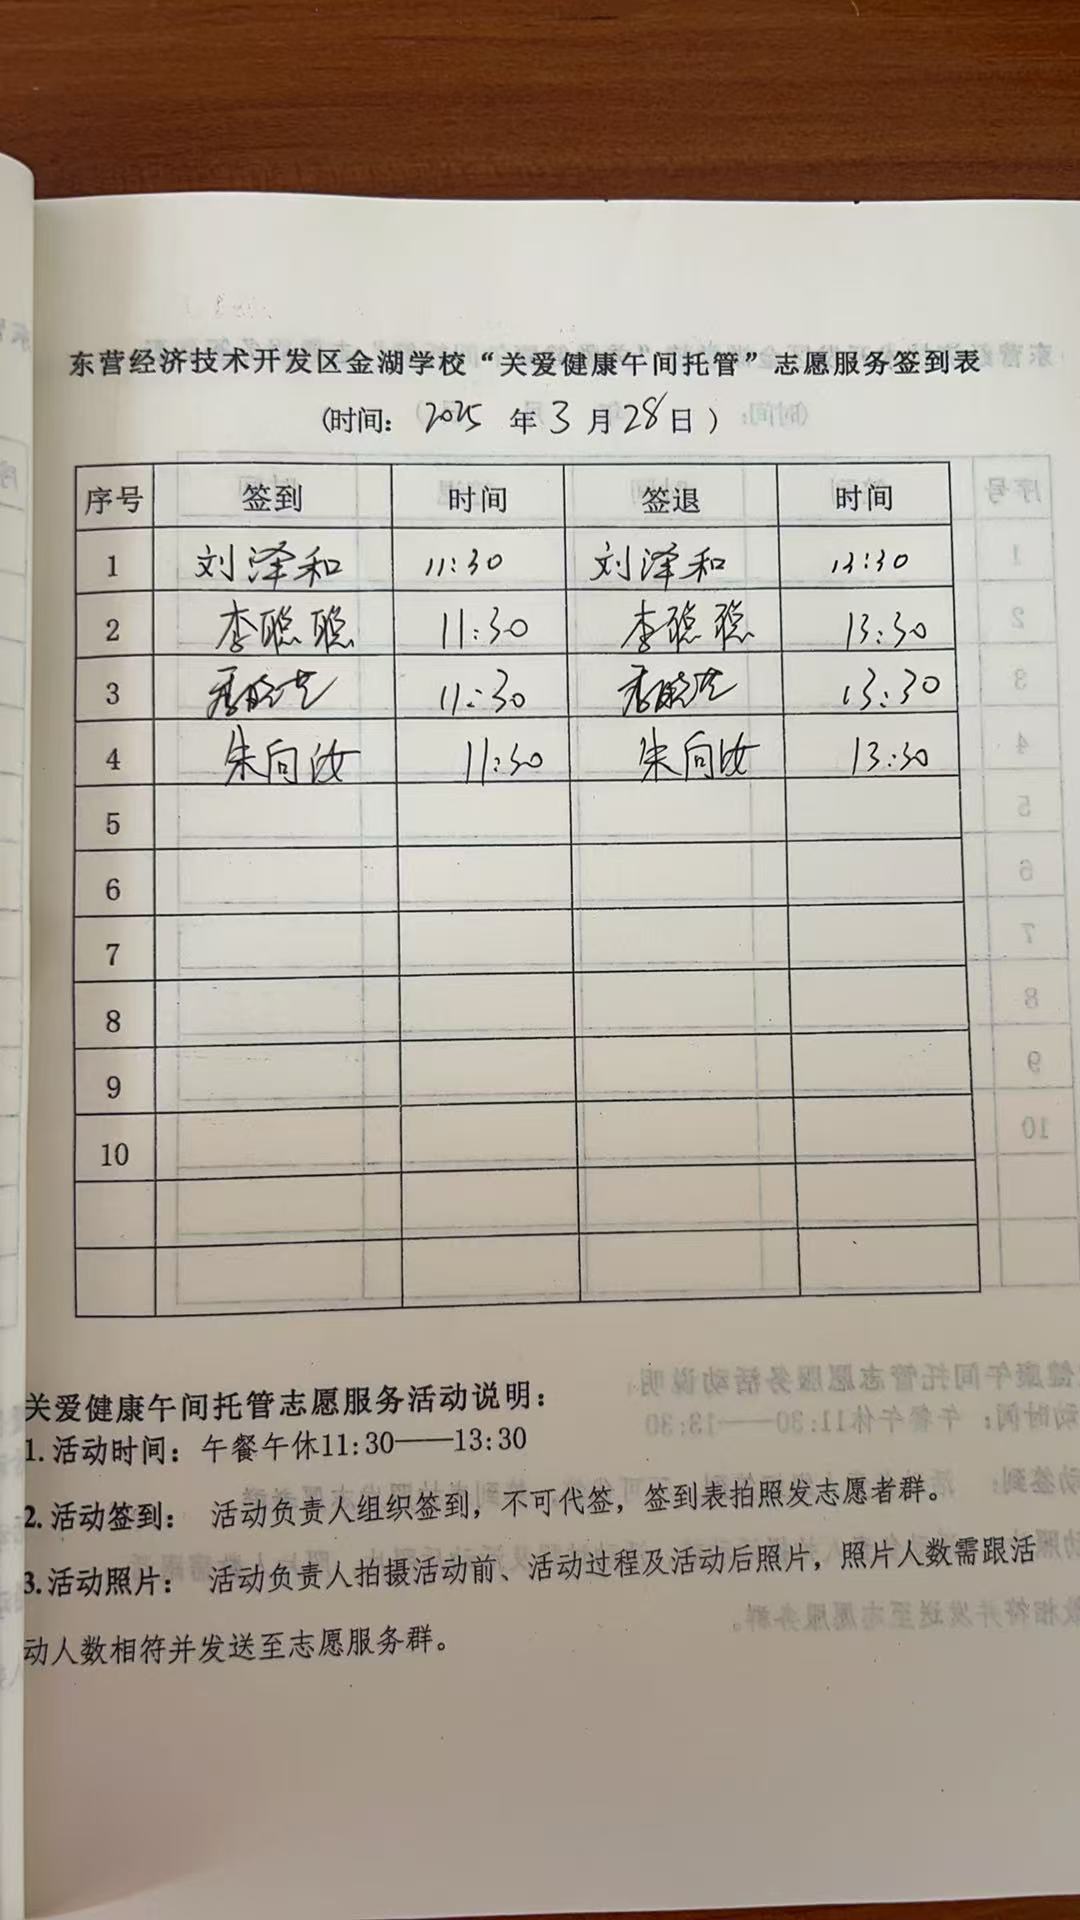 东营经济技术开发区金湖学校“关爱健康午间托管”志愿服务签到表
(时间: 2025 年 3 月 28 日 )
序号 签到 时间 签退 时间
1 刘泽和 11:30 刘泽和 13:30
2 李聪聪 11:30 李聪聪 13:30
3 11:30 13:30
4 朱向汝 11:30 朱向汝 13:30
5
6
7
8
9
10
关爱健康午间托管志愿服务活动说明:
1.活动时间: 午餐午休11:30——13:30
2.活动签到: 活动负责人组织签到，不可代签，签到表拍照发志愿者群。
3.活动照片: 活动负责人拍摄活动前、活动过程及活动后照片，照片人数需跟活
动人数相符并发送至志愿服务群。